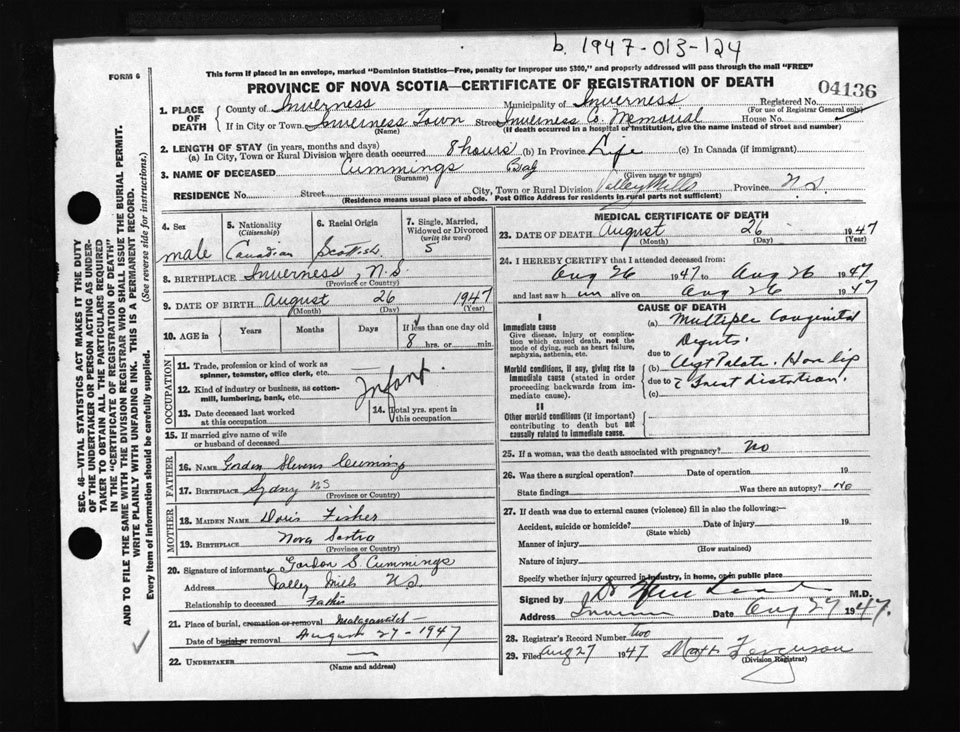 b. 1947-013-124
FORM 6
This form if placed in an envelope, marked "Dominion Statistics—Free, penalty for improper use $300," and properly addressed will pass through the mail "FREE"
PROVINCE OF NOVA SCOTIA—CERTIFICATE OF REGISTRATION OF DEATH
04136
1. PLACE OF DEATH County of Inverness Municipality of Inverness Registered No.
(For use of Registrar General only)
If in City or Town Inverness Town Street Inverness Co. Memorial House No.
(Name) (If death occurred in a hospital or institution, give the name instead of street and number)
2. LENGTH OF STAY (in years, months and days)
(a) In City, Town or Rural Division where death occurred 8 hours (b) In Province Life (c) In Canada (if immigrant)
3. NAME OF DECEASED Cummings Baby
(Surname) (Given name or names)
RESIDENCE No. Street City, Town or Rural Division Valley Mills Province N.S.
(Residence means usual place of abode. Post Office Address for residents in rural parts not sufficient)
4. Sex 5. Nationality (Citizenship) 6. Racial Origin 7. Single, Married, Widowed or Divorced (write the word)
male Canadian Scottish S
8. BIRTHPLACE Inverness, N.S.
(Province or Country)
9. DATE OF BIRTH August 26 1947
(Month) (Day) (Year)
10. AGE in Years Months Days If less than one day old
8 hrs. or min.
OCCUPATION
11. Trade, profession or kind of work as spinner, teamster, office clerk, etc.
12. Kind of industry or business, as cotton-mill, lumbering, bank, etc.
Infant
13. Date deceased last worked at this occupation 14. Total yrs. spent in this occupation
15. If married give name of wife or husband of deceased
FATHER
16. NAME Gordon Stevens Cummings
17. BIRTHPLACE Sydny NS
(Province or Country)
MOTHER
18. MAIDEN NAME Doris Fisher
19. BIRTHPLACE Nova Scotia
(Province or Country)
20. Signature of informant Gordon S. Cummings
Address Valley Mills N.S.
Relationship to deceased Father
21. Place of burial, cremation or removal Malagawatch
Date of burial or removal August 27-1947
22. UNDERTAKER
(Name and address)
MEDICAL CERTIFICATE OF DEATH
23. DATE OF DEATH August 26 1947
(Month) (Day) (Year)
24. I HEREBY CERTIFY that I attended deceased from:
Aug 26 1947 to Aug 26 1947
and last saw him alive on Aug 26 1947
CAUSE OF DEATH
I
Immediate cause
Give disease, injury or complication which caused death, not the mode of dying, such as heart failure, asphyxia, asthenia, etc.
(a) Multiple Congenital
due to
Morbid conditions, if any, giving rise to immediate cause (stated in order proceeding backwards from immediate cause).
(b) Cleft Palate. Hare lip
due to
(c)
II
Other morbid conditions (if important) contributing to death but not causally related to immediate cause.
25. If a woman, was the death associated with pregnancy? No
26. Was there a surgical operation? Date of operation 19
State findings Was there an autopsy? no
27. If death was due to external causes (violence) fill in also the following:—
Accident, suicide or homicide? Date of injury 19
(State which)
Manner of injury
(How sustained)
Nature of injury
Specify whether injury occurred in industry, in home, or in public place
Signed by Dr M.D.
Address Date Aug 27 1947.
28. Registrar's Record Number two
29. Filed Aug 27 1947 Ferguson
(Division Registrar)
SEC. 46—VITAL STATISTICS ACT MAKES IT THE DUTY
OF THE UNDERTAKER OR PERSON ACTING AS UNDER-
TAKER TO OBTAIN ALL THE PARTICULARS REQUIRED
IN THE "CERTIFICATE OF REGISTRATION OF DEATH"
AND TO FILE THE SAME WITH THE DIVISION REGISTRAR WHO SHALL ISSUE THE BURIAL PERMIT.
WRITE PLAINLY WITH UNFADING INK. THIS IS A PERMANENT RECORD.
Every item of information should be carefully supplied. (See reverse side for instructions.)